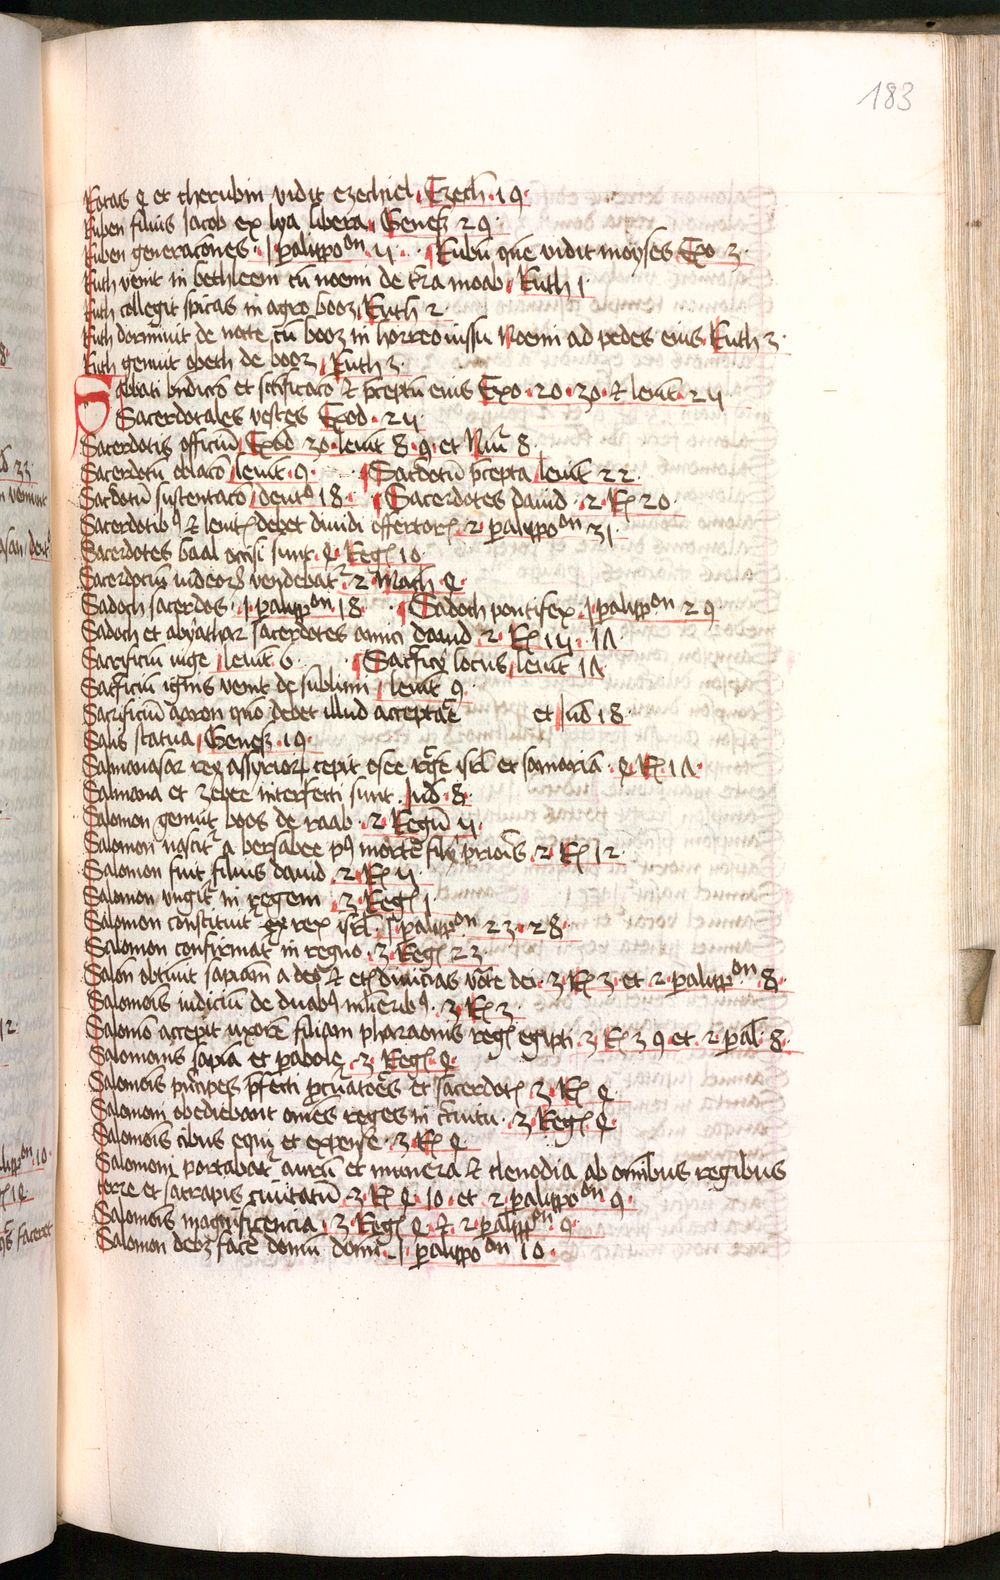 183
Rotas 4 et cherubin vidit ezechiel Ezech. 19.
Ruben filius Jacob ex lya libera Genes 29.
Ruben generacones. 1 palippoon 11. Rubū que vidit moyses Exo 3.
Ruth venit in bethleem cū noemi de tra moab Ruth 1.
Ruth collegit spicas in agro booz Ruth 2
Ruth dormiuit de nocte cū booz in horreo iussu Noemi ad pedes eius Ruth 3.
Ruth genuit obeth de booz Ruth 3.
Sabati et scificaco et pceptū eius Exo. 20. 30. et leuit. 24
Sacerdotales vestes Exod. 24.
Sacerdotis officiū Exod 30. leuit 8. 9. et Nūi 8
Sacerdotū oblaco leuit. 9. Sacdotū pcepta leuit 22.
Sacdotū sustentaco deut 18. Sacerdotes dauid. 2. R 20
Sacerdotib9 et leuit debet diuidi 2. palippoon 31
Sacerdotes baal occisi sunt. 4. Reg 10.
Sacerdociū iudeor vendebat. 2 Mach 4.
Sadoch sacerdos. 1. palippon 18. Sadoch pontifex. 1 palippon 29.
Sadoch et abyathar sacerdotes amici dauid. 2. R 14. 17
Sacrificiū iuge leuit 6. Sacficij locus leuit 17
Sacficiū ignis venit de sublimi leuit 9.
Sacrificiū aaron quō debet illud acceptare et Jud 18.
Salis statua Genes. 19.
Salmanasar rex assyrior cepit osee rege isrl et samariā. 4. R. 17.
Salmana et zebee interfecti sunt. Jud. 8.
Salomon genuit boos de raab. 2. Regū 11.
Salomon nascit a bersabee p9 mortē filij prioris. 2. R 12.
Salomon fuit filius dauid. 2. R 11
Salomon vngit in regem. 3. Reg 1
Salomon constituit rex isrl. 1 palippon 23. 28.
Salomon confirmat in regno. 3. Reg 23.
Salon obtinuit sapiam a deo et et diuicias dei. 3. R 3. et. 2. palippon. 8.
Salomois iudiciū de duab9 mlierib9. 3. R 3.
Salomō accepit vxorē filiam pharaonis reg egipti. 3. R 3 9 et. 2. pal. 8.
Salomonis sapia et pabole. 3. Reg 4.
Salomois pncipes pfecti et sacerdot 3. R 4
Salomoni obediebant omes reges in 3. Reg 4.
Salomois cibus equi et expense. 3. R 4.
Salomoni portabat aurū et munera et clenodia ab omibus regibus
terre et satrapis ciuitatū. 3. R 4. 10. et. 2. palippoon 9.
Salomois magnificencia. 3. Reg 4. et. 2. palippon. 9.
Salomon debz face domū domi. 1 palippoon 10.